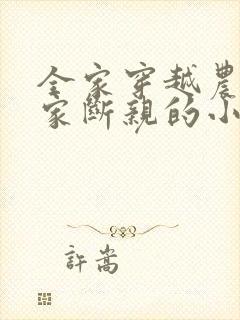 全家穿越農
家斷親的小
許嵩